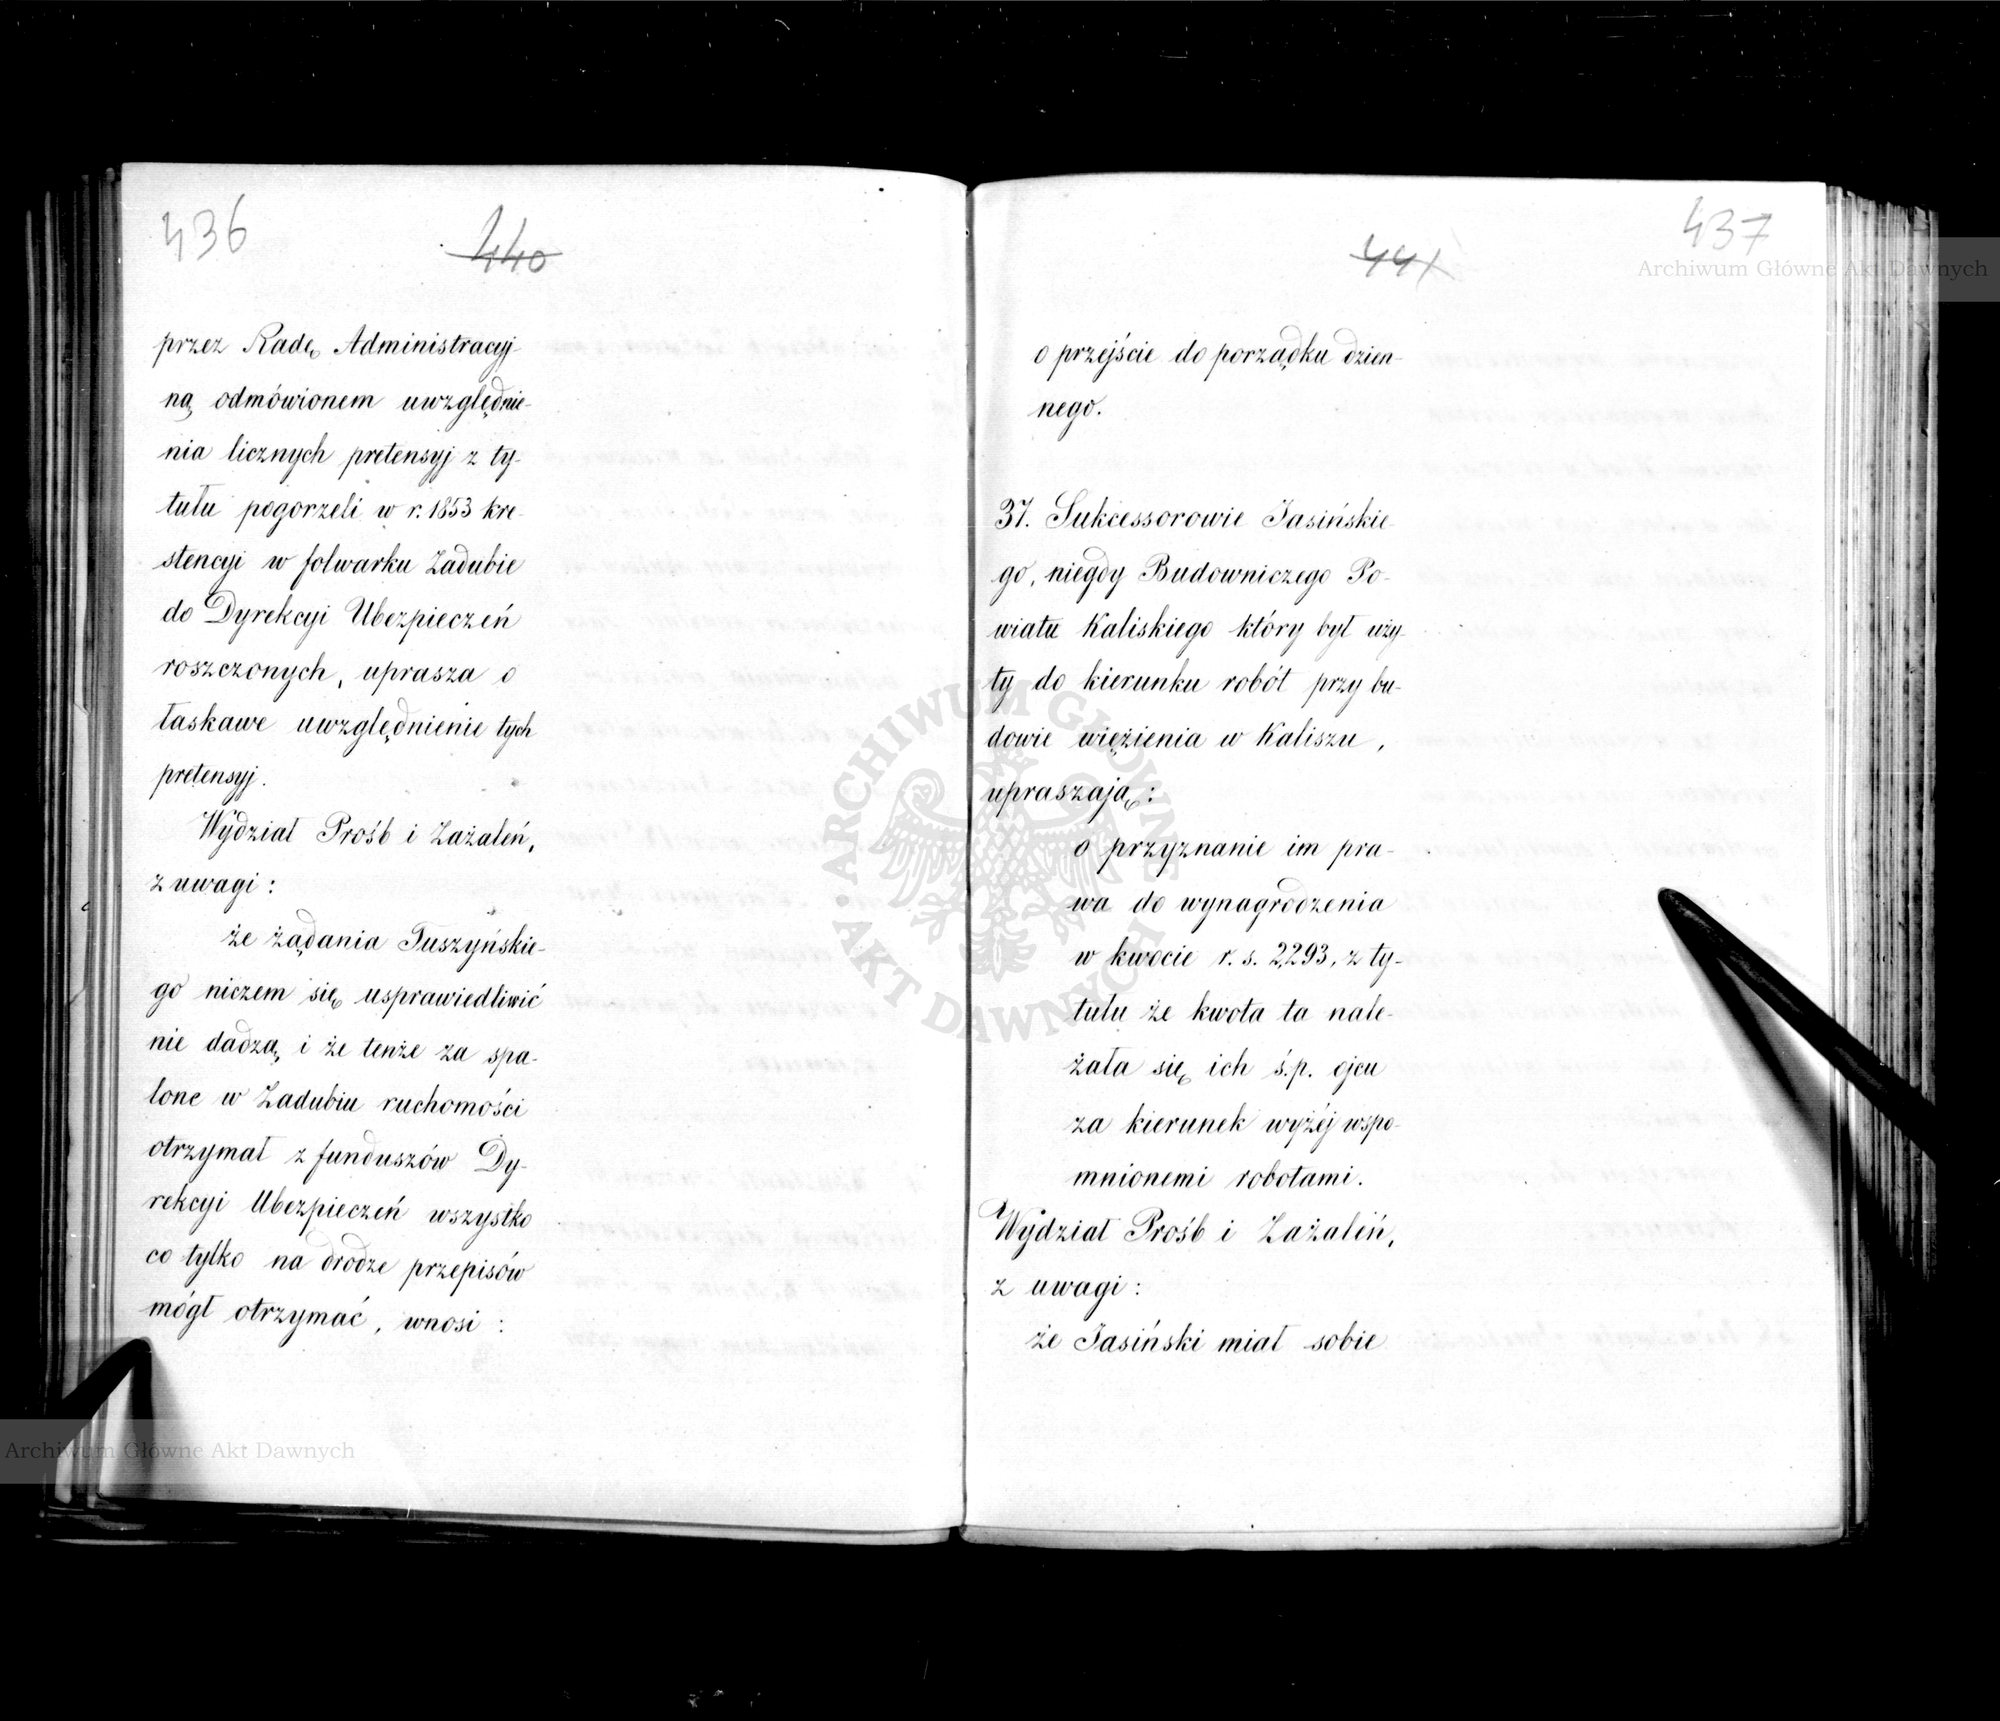 436
440
przez Radę Administracyj-
ną odmówionem uwzględnie-
nia licznych pretensyj z ty-
tułu pogorzeli w r. 1853 kre-
stencyi w folwarku Zadubie
do Dyrekcyi Ubezpieczeń
roszczonych, uprasza o
łaskawe uwzględnienie tych
pretensyj.
Wydział Prośb i Zażaleń,
z uwagi:
że żądania Tuszyńskie-
go niczem się usprawiedliwić
nie dadzą, i że tenże za spa-
lone w Zadubiu ruchomości
otrzymał z funduszów Dy-
rekcyi Ubezpieczeń wszystko
co tylko na drodze przepisów
mógł otrzymać, wnosi:
437
441
o przejście do porządku dzien-
nego.
37. Sukcessorowie Jasińskie-
go, niegdy Budowniczego Po-
wiatu Kaliskiego który był uży-
ty do kierunku robót przy bu-
dowie więzienia w Kaliszu,
upraszają:
o przyznanie im pra-
wa do wynagrodzenia
w kwocie r. s. 2,293, z ty-
tułu że kwota ta nale-
żała się ich ś.p. ojcu
za kierunek wyżéj wspo-
mnionemi robotami.
Wydział Prośb i Zażaleń,
z uwagi:
że Jasiński miał sobie
Archiwum Główne Akt Dawnych
Archiwum Główne Akt Dawnych
ARCHIWUM GŁÓWNE
AKT DAWNYCH